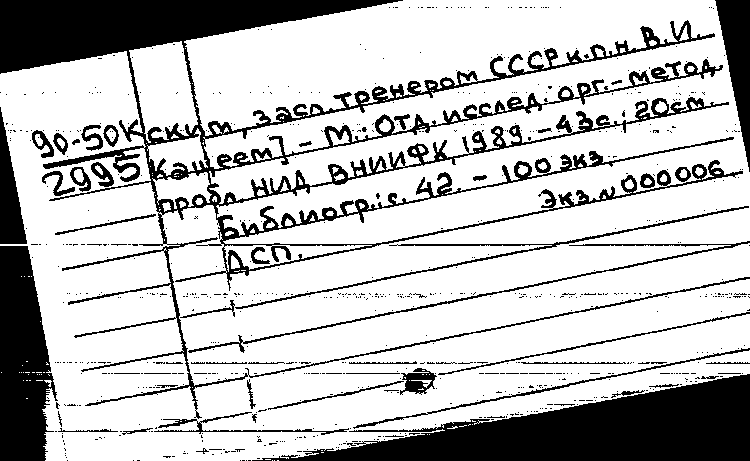 90-50К
2995
ским, засл. тренером СССР к.п.н. В.И.
Кащеем] - М.: Отд. исслед. орг.-метод.
пробл. НИД ВНИИФК, 1989. - 43с.; 20см.
Библиогр.: с. 42. - 100 экз.
Экз. № 000006
ДСП.